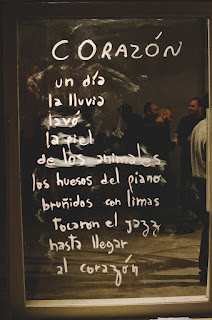 CORAZÓN
un día
la lluvia
lavó
la piel
de los animales
los huesos del piano
bruñidos con limas
tocaron el jazz
hasta llegar
al corazón